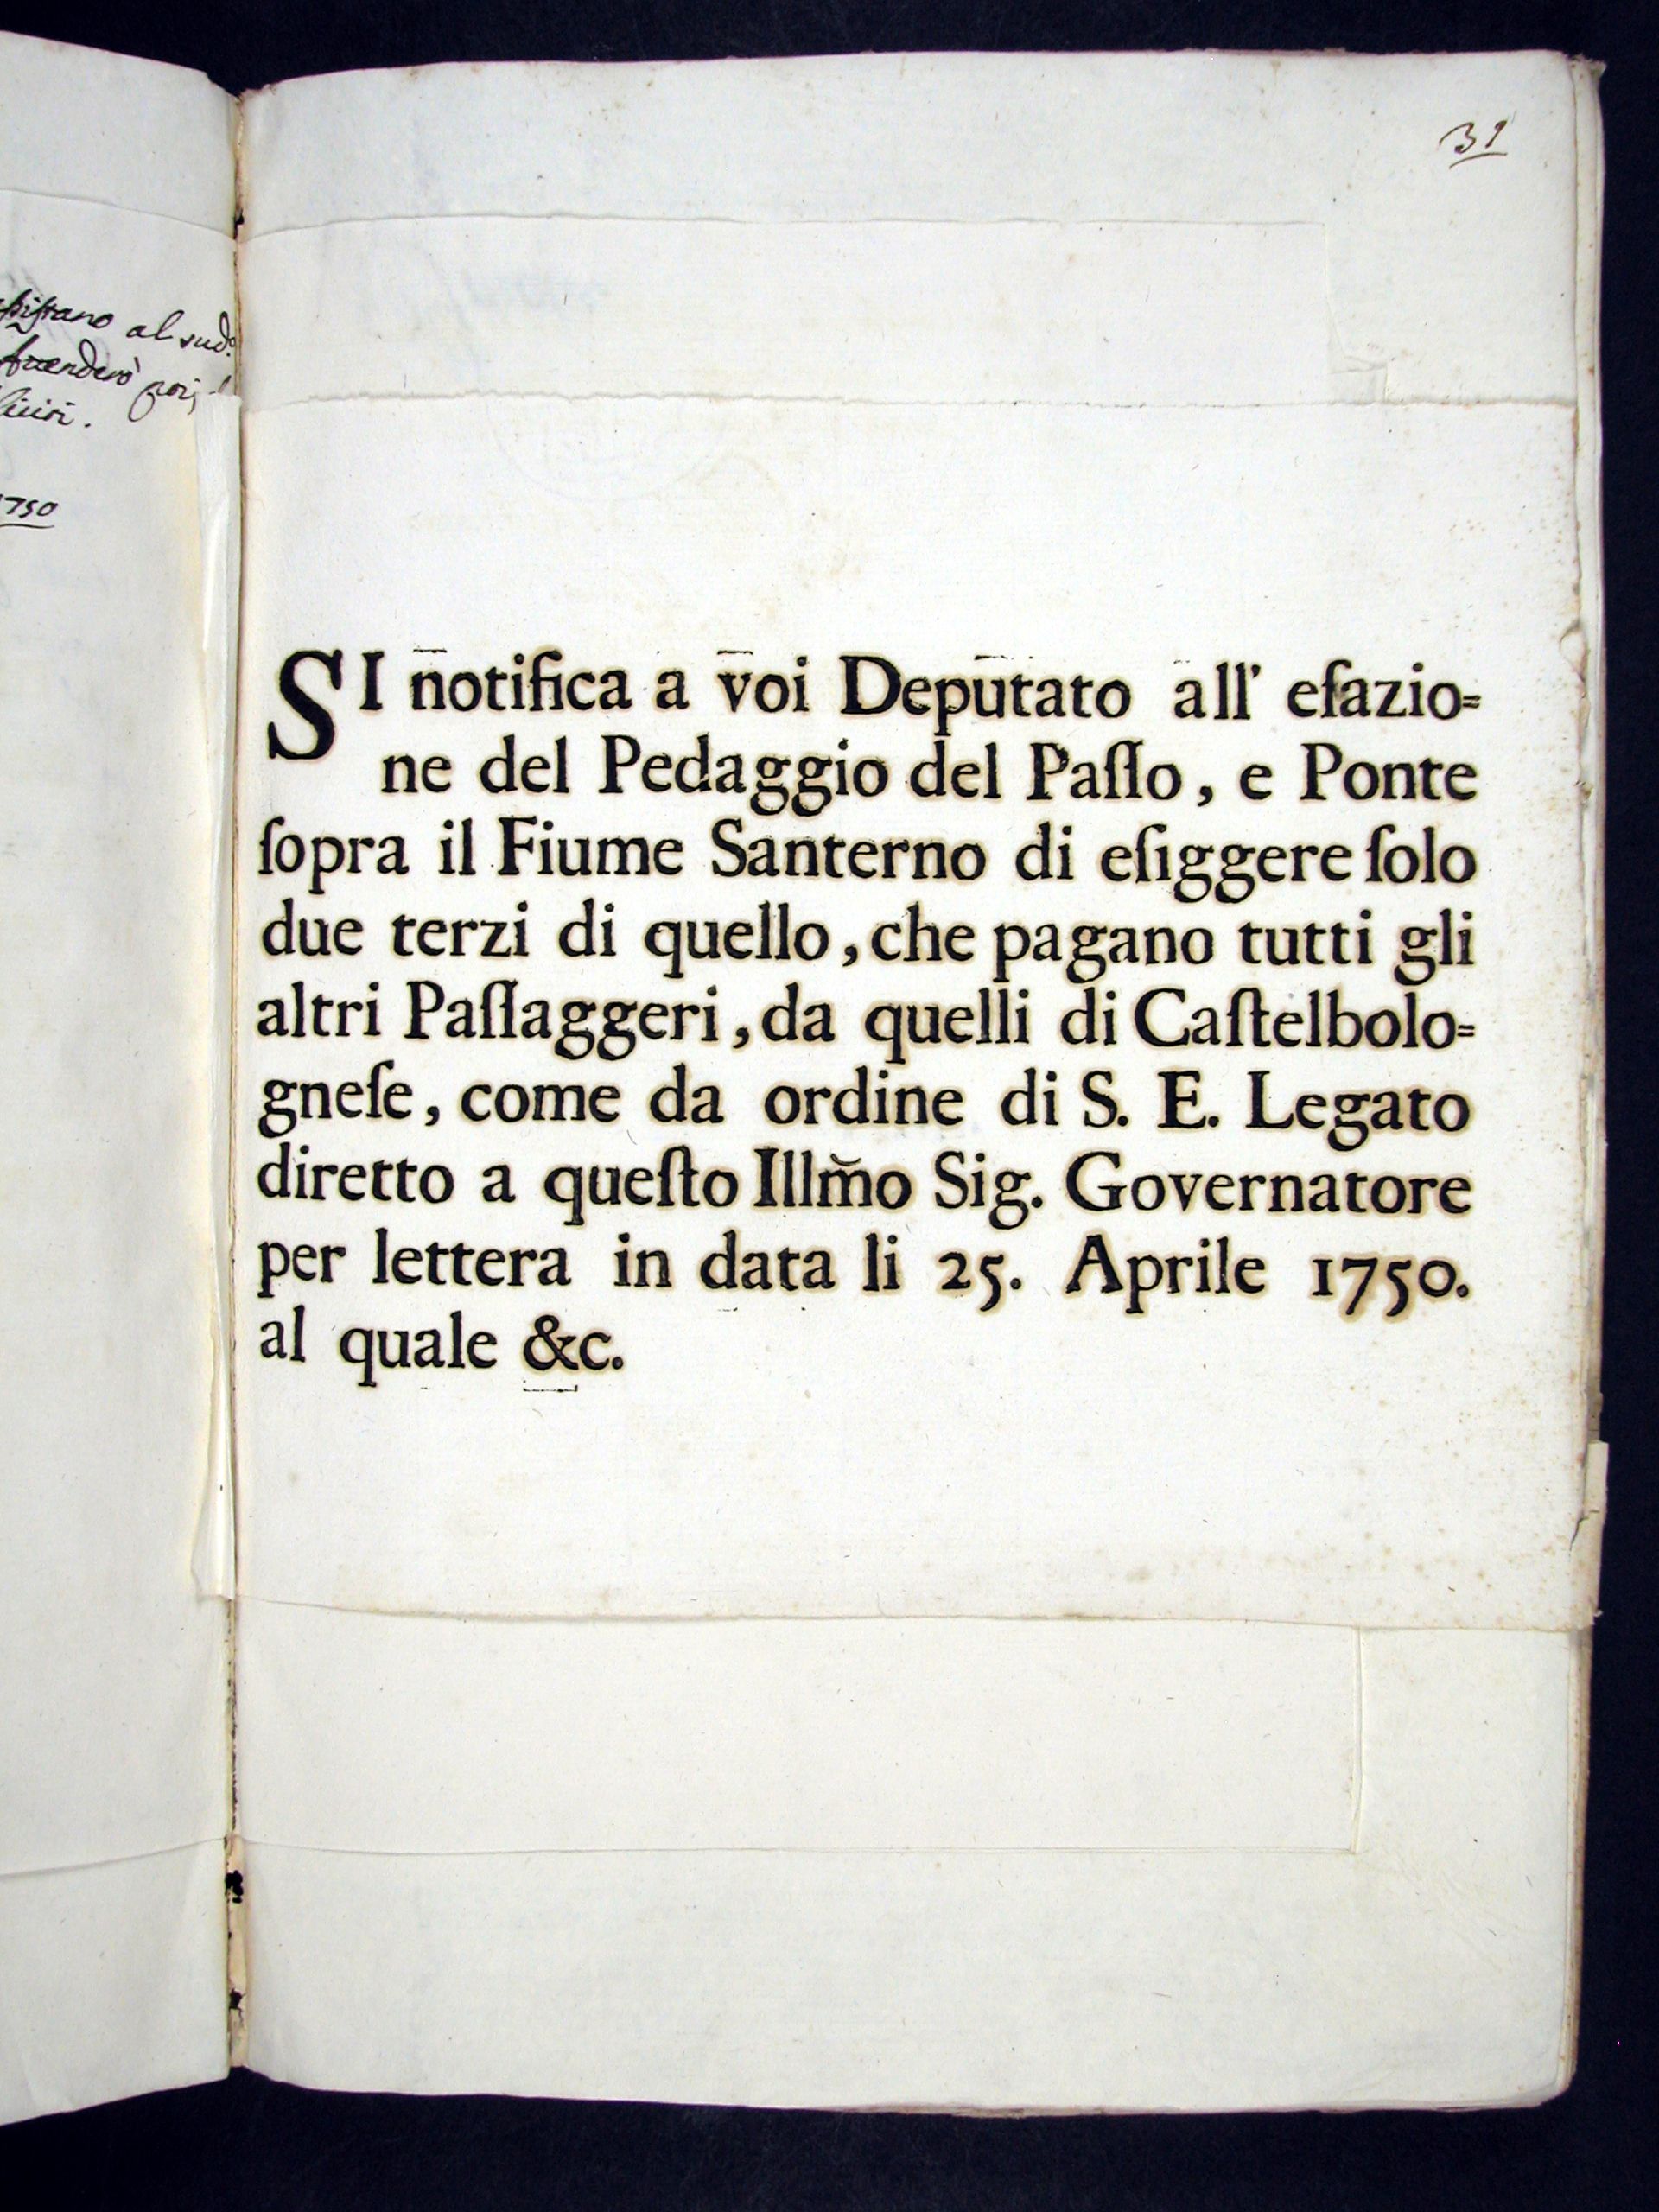 al sud.o
1750
31
SI notifica a voi Deputato all' eſazio=
ne del Pedaggio del Paſſo, e Ponte
ſopra il Fiume Santerno di eſiggere ſolo
due terzi di quello, che pagano tutti gli
altri Paſſaggeri, da quelli di Caſtelbolo=
gneſe, come da ordine di S. E. Legato
diretto a queſto Illm̃o Sig. Governatore
per lettera in data li 25. Aprile 1750.
al quale &c.